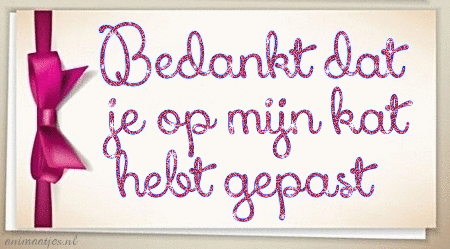 Bedankt dat
je op mijn kat
hebt gepast
animaatjes.nl